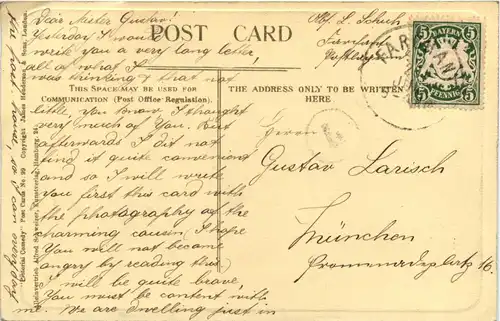 Dear Mister Gustav!
Yesterday I wa
write you a very long letter,
all of what I
was thinking & that not
little, you know. I thought
very much of you. But
afterwards I did not
find it quite convenient
and so I will write
you first this card with
the photography of the
charming cousin. I hope
You will not become
angry by reading this.
I will be quite brave.
You must be content with
me. We are dwelling just in
POST CARD
THIS SPACE MAY BE USED FOR
COMMUNICATION (Post Office Regulation).
THE ADDRESS ONLY TO BE WRITTEN
HERE
Abs. L. Schuh
BAYERN
5
5
5
5
PFENNIG
Herrn
Gustav Larisch
München
Promenadeplatz 16.
Pictorial Comedy" Post Cards No. 99 Copyright James Henderson & Sons, London.
Alfred Schweizer, Kunstverlag, Hamburg 24.